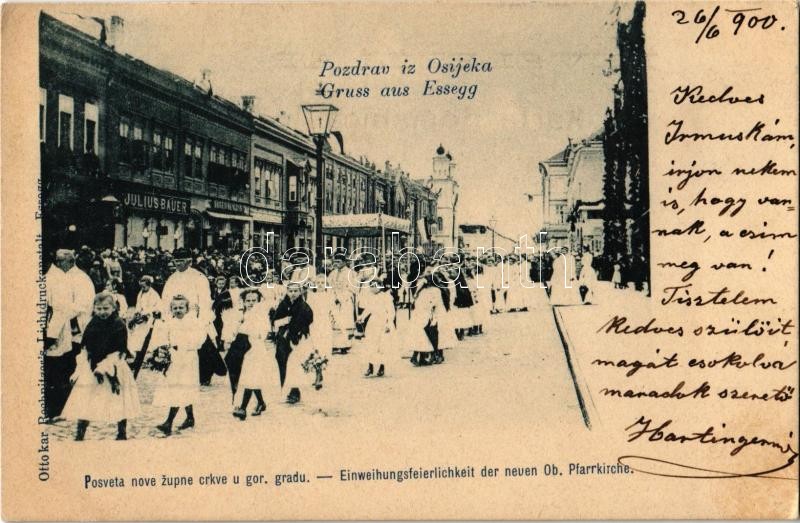 26/6 900.
Pozdrav iz Osijeka
Gruss aus Essegg
Kedves
Irmuskám,
irjon nekem
is, hogy van-
nak, a czim
meg van!
Tisztelem
Kedves szülőit
magát csokolva
maradok szerető
Hartingerné
JULIUS BAUER
darabanth.com
Ottokar Rechnitzer's Lichtdruckanstalt, Essegg
Posveta nove župne crkve u gor. gradu. — Einweihungsfeierlichkeit der neuen Ob. Pfarrkirche.